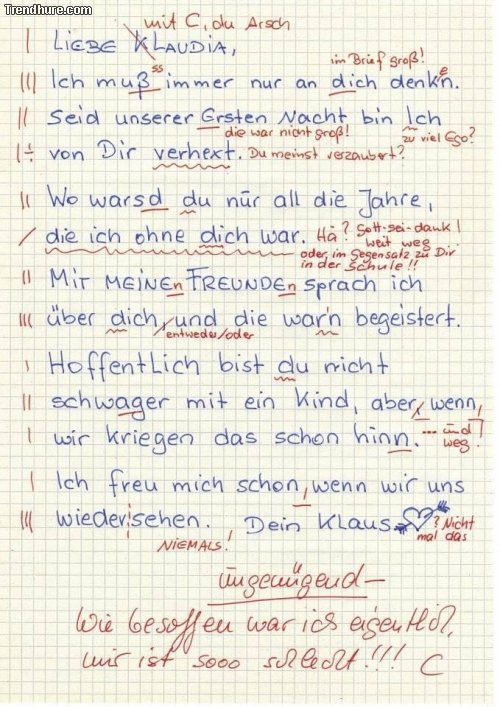 Trendhure.com
mit C, du Arsch
| LIEBE KLAUDIA,
im Brief groß!
ss e
||| Ich muß immer nur an dich denk'n.
|| Seid unserer Ersten Nacht bin Ich
die war nicht groß! zu viel Ego?
|÷ von Dir verhext. Du meinst verzaubert?
|| Wo warsd du nur all die Jahre,
/ die ich ohne dich war. Hä? Gott-sei-dank!
weit weg
oder im Gegensatz zu Dir
in der Schule!!
|| Mit MEINEn FREUNDEn sprach ich
||| über dich, und die war'n begeistert.
entweder/oder
| Hoffentlich bist du nicht
|| schwager mit ein Kind, aber, wenn,
| wir kriegen das schon hinn. ... und weg!
| Ich freu mich schon, wenn wir uns
||| wieder sehen. Dein Klaus ? Nicht
mal das
NIEMALS!
ungenügend –
Wie besoffen war ich eigentlich,
mir ist sooo schlecht!!! C